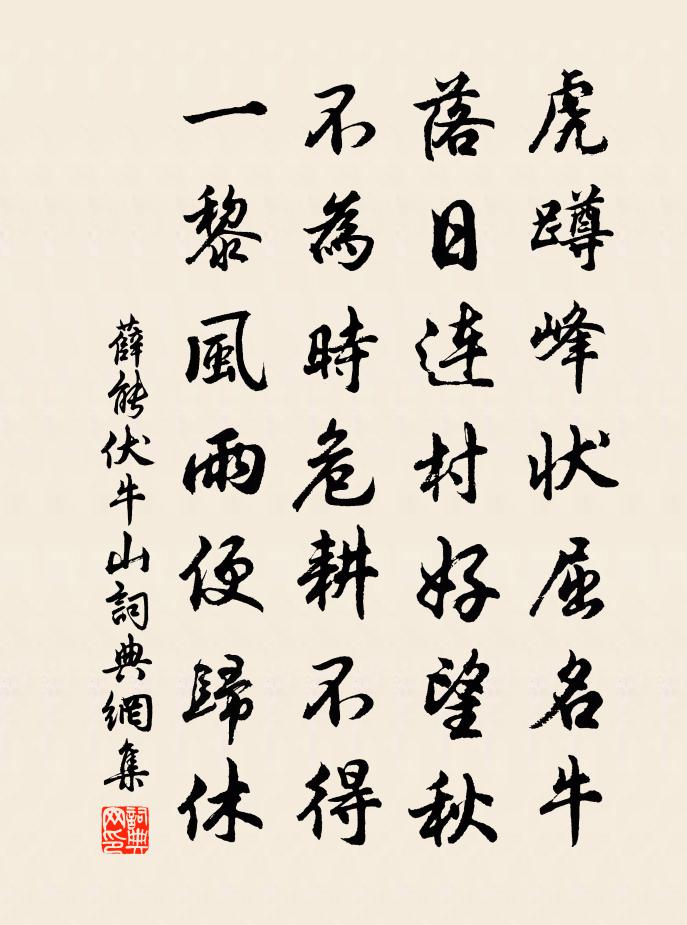 虎蹲峰狀屈名牛
落日連村好望秋
不為時危耕不得
一黎風雨便歸休
薛能伏牛山詞典網集
詞典
网印